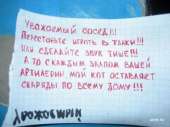 Уважаемый сосед!!!
Перестаньте играть в танки!!!
Или сделайте звук тише!!!
А то с каждым залпом вашей
артилерии мой кот оставляет
снаряды по всему дому!!!